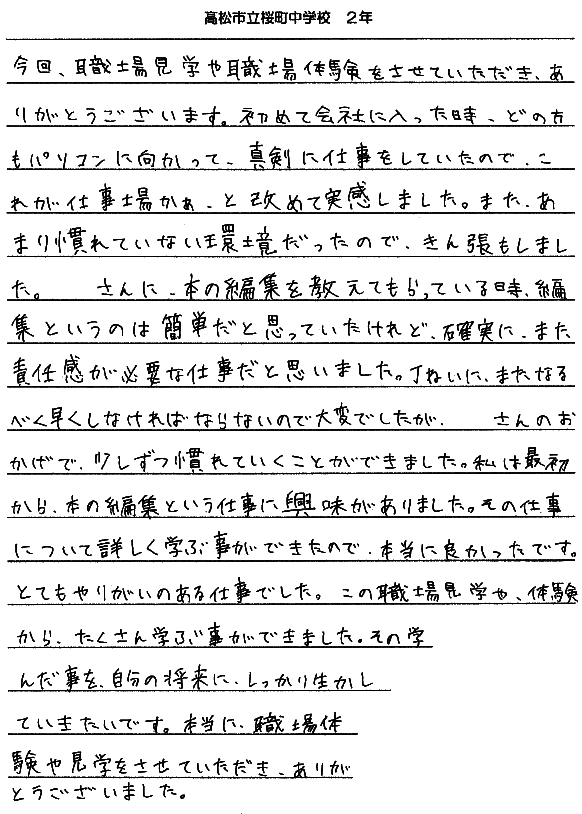 高松市立桜町中学校　2年
今回、職場見学や職場体験をさせていただき、あ
りがとうございます。初めて会社に入った時、どの方
もパソコンに向かって、真剣に仕事をしていたので、こ
れが仕事場かぁ、と改めて実感しました。また、あ
まり慣れていない環境だったので、きん張もしまし
た。　　さんに、本の編集を教えてもらっている時、編
集というのは簡単だと思っていたけれど、確実に、また
責任感が必要な仕事だと思いました。丁ねいに、またなる
べく早くしなければならないので大変でしたが、　　さんのお
かげで、少しずつ慣れていくことができました。私は最初
から、本の編集という仕事に興味がありました。その仕事
について詳しく学ぶ事ができたので、本当に良かったです。
とてもやりがいのある仕事でした。この職場見学や、体験
から、たくさん学ぶ事ができました。その学
んだ事を、自分の将来に、しっかり生かし
ていきたいです。本当に、職場体
験や見学をさせていただき、ありが
とうございました。